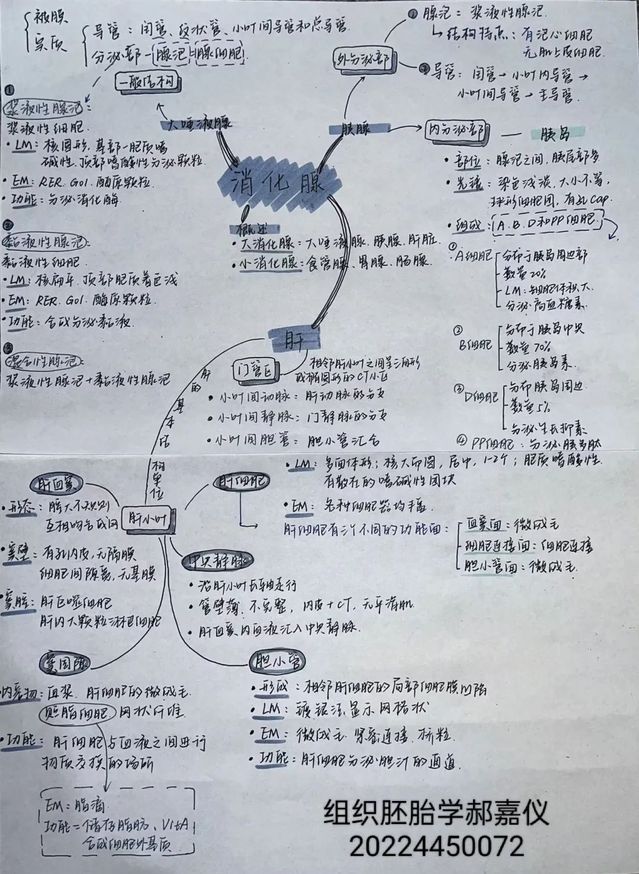 被膜
实质
导管：闰管、纹状管、小叶间导管和总导管
分泌部—腺泡—腺细胞
一般结构
①
浆液性腺泡：
浆液性细胞.
LM：核圆形、基部—胞质嗜
碱性、顶部嗜酸性分泌颗粒.
EM：RER. Gol. 酶原颗粒.
功能：分泌消化酶.
②
黏液性腺泡：
黏液性细胞.
LM：核扁平、顶部胞质着色浅
EM：RER. Gol.
功能：合成分泌黏液
③
混合性腺泡：
浆液性腺泡+黏液性腺泡
大唾液腺
消化腺
概述
大消化腺：大唾液腺、胰腺、肝脏
小消化腺：食管腺、胃腺、肠腺.
胰腺
外分泌部
① 腺泡：浆液性腺泡.
结构特点：有泡心细胞
无肌上皮细胞.
② 导管：闰管→小叶内导管→
小叶间导管→主导管.
内分泌部 — 胰岛
部位：腺泡之间，胰尾部多
先锋：染色浅淡、大小不等，
球形细胞团，有孔cap.
组成：A、B、D和PP细胞.
① A细胞
分布于胰岛周边部
数量20%
LM：细胞体积大
分泌高血糖素.
② B细胞
分布于胰岛中央
数量70%
分泌胰岛素.
③ D细胞
分布胰岛周边
数量5%
分泌生长抑素
④ PP细胞：分泌胰多肽
肝
门管区
相邻肝小叶之间呈三角形
或椭圆形的CT小区
小叶间动脉：肝动脉的分支
小叶间静脉：门静脉的分支
小叶间胆管：胆小管汇合
肝的基本结构单位
肝小叶
肝血窦
形态：腔大不规则
互相吻合成网
窦壁：有孔内皮，无隔膜
细胞间隙宽，无基膜
窦腔：肝巨噬细胞
肝内大颗粒淋巴细胞
肝细胞
LM：多面体形；核大而圆，居中，1-2个；胞质嗜酸性.
有散在的嗜碱性团块
EM：各种细胞器均丰富.
肝细胞有三个不同的功能面：
血窦面：微绒毛
细胞连接面：细胞连接
胆小管面：微绒毛.
中央静脉
沿肝小叶长轴走行
管壁薄、不完整，内皮+CT，无平滑肌
肝血窦内血液汇入中央静脉.
窦周隙
内容物：血浆、肝细胞的微绒毛.
贮脂细胞、网状纤维
功能：肝细胞与血液之间进行
物质交换的场所
EM：脂滴
功能=储存脂肪、VitA
合成细胞外基质
胆小管
形成：相邻肝细胞的局部细胞膜凹陷
LM：镀银法显示网格状
EM：微绒毛、紧密连接、桥粒.
功能：肝细胞分泌胆汁的通道.
组织胚胎学郝嘉仪
20224450072